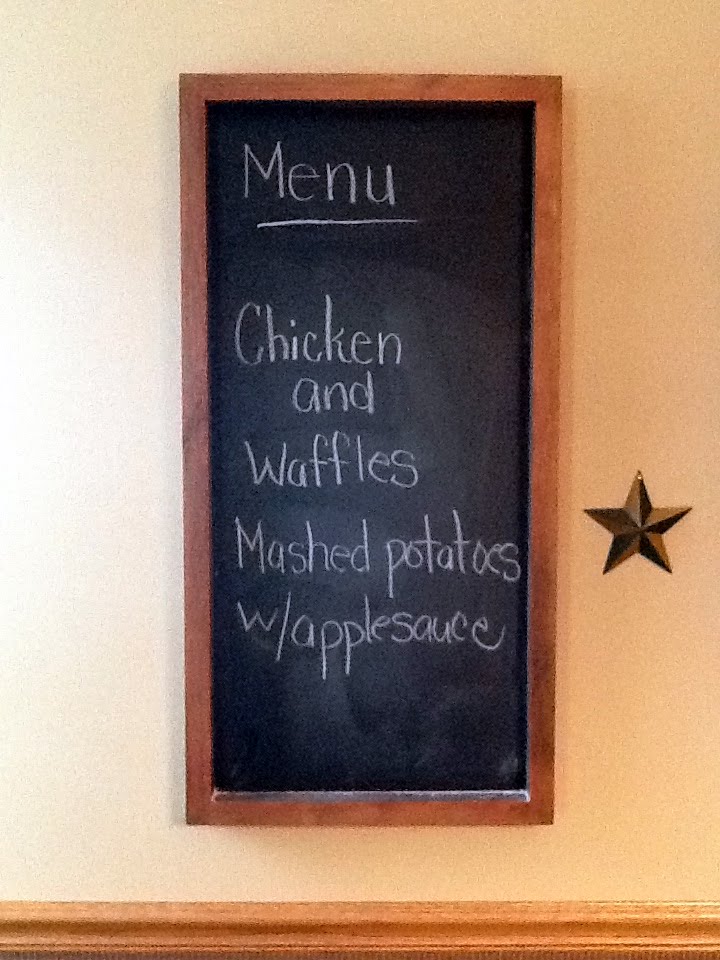 Menu
Chicken
and
Waffles
Mashed potatoes
w/applesauce